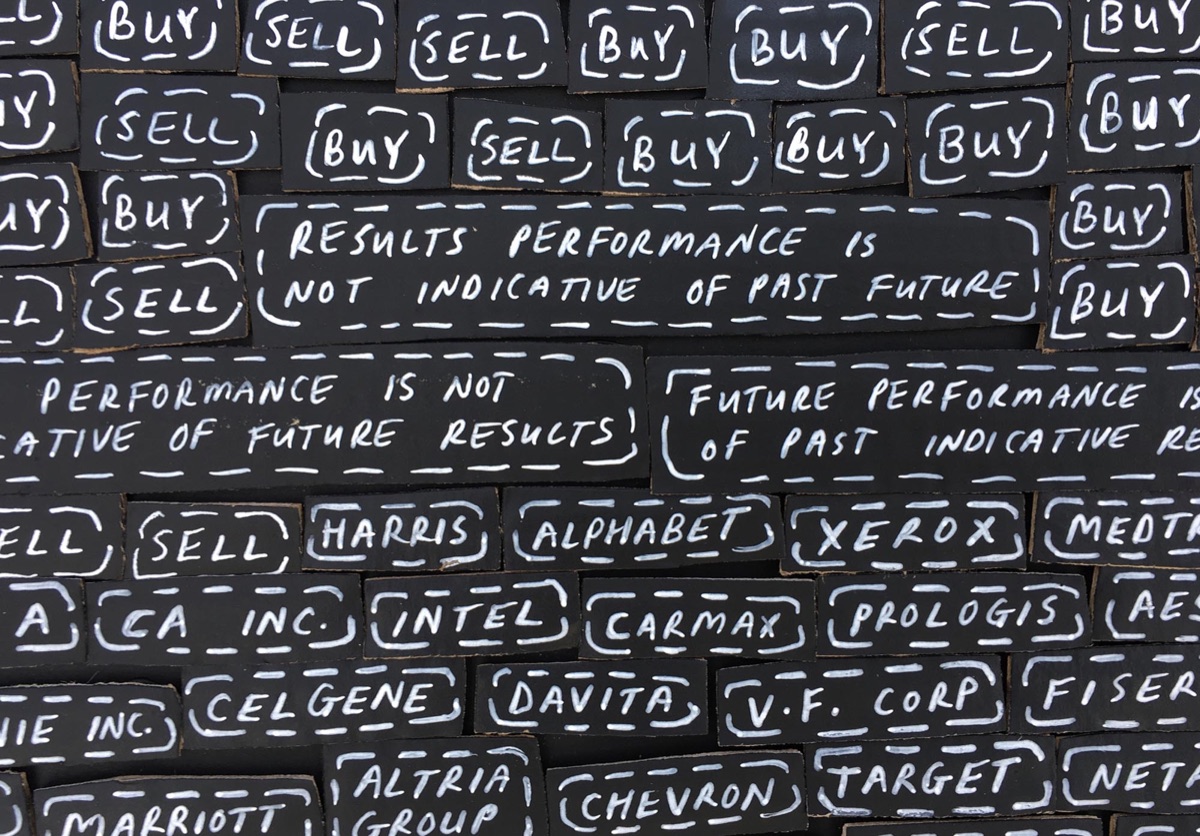 BUY SELL SELL BUY BUY SELL BUY
SELL BUY SELL BUY BUY BUY BUY
BUY BUY
SELL BUY
RESULTS PERFORMANCE IS
NOT INDICATIVE OF PAST FUTURE
PERFORMANCE IS NOT
OF FUTURE RESULTS
FUTURE PERFORMANCE
OF PAST INDICATIVE
SELL HARRIS ALPHABET XEROX
A CA INC. INTEL CARMAX PROLOGIS
INC. CELGENE DAVITA V.F. CORP
MARRIOTT
ALTRIA
GROUP
CHEVRON TARGET